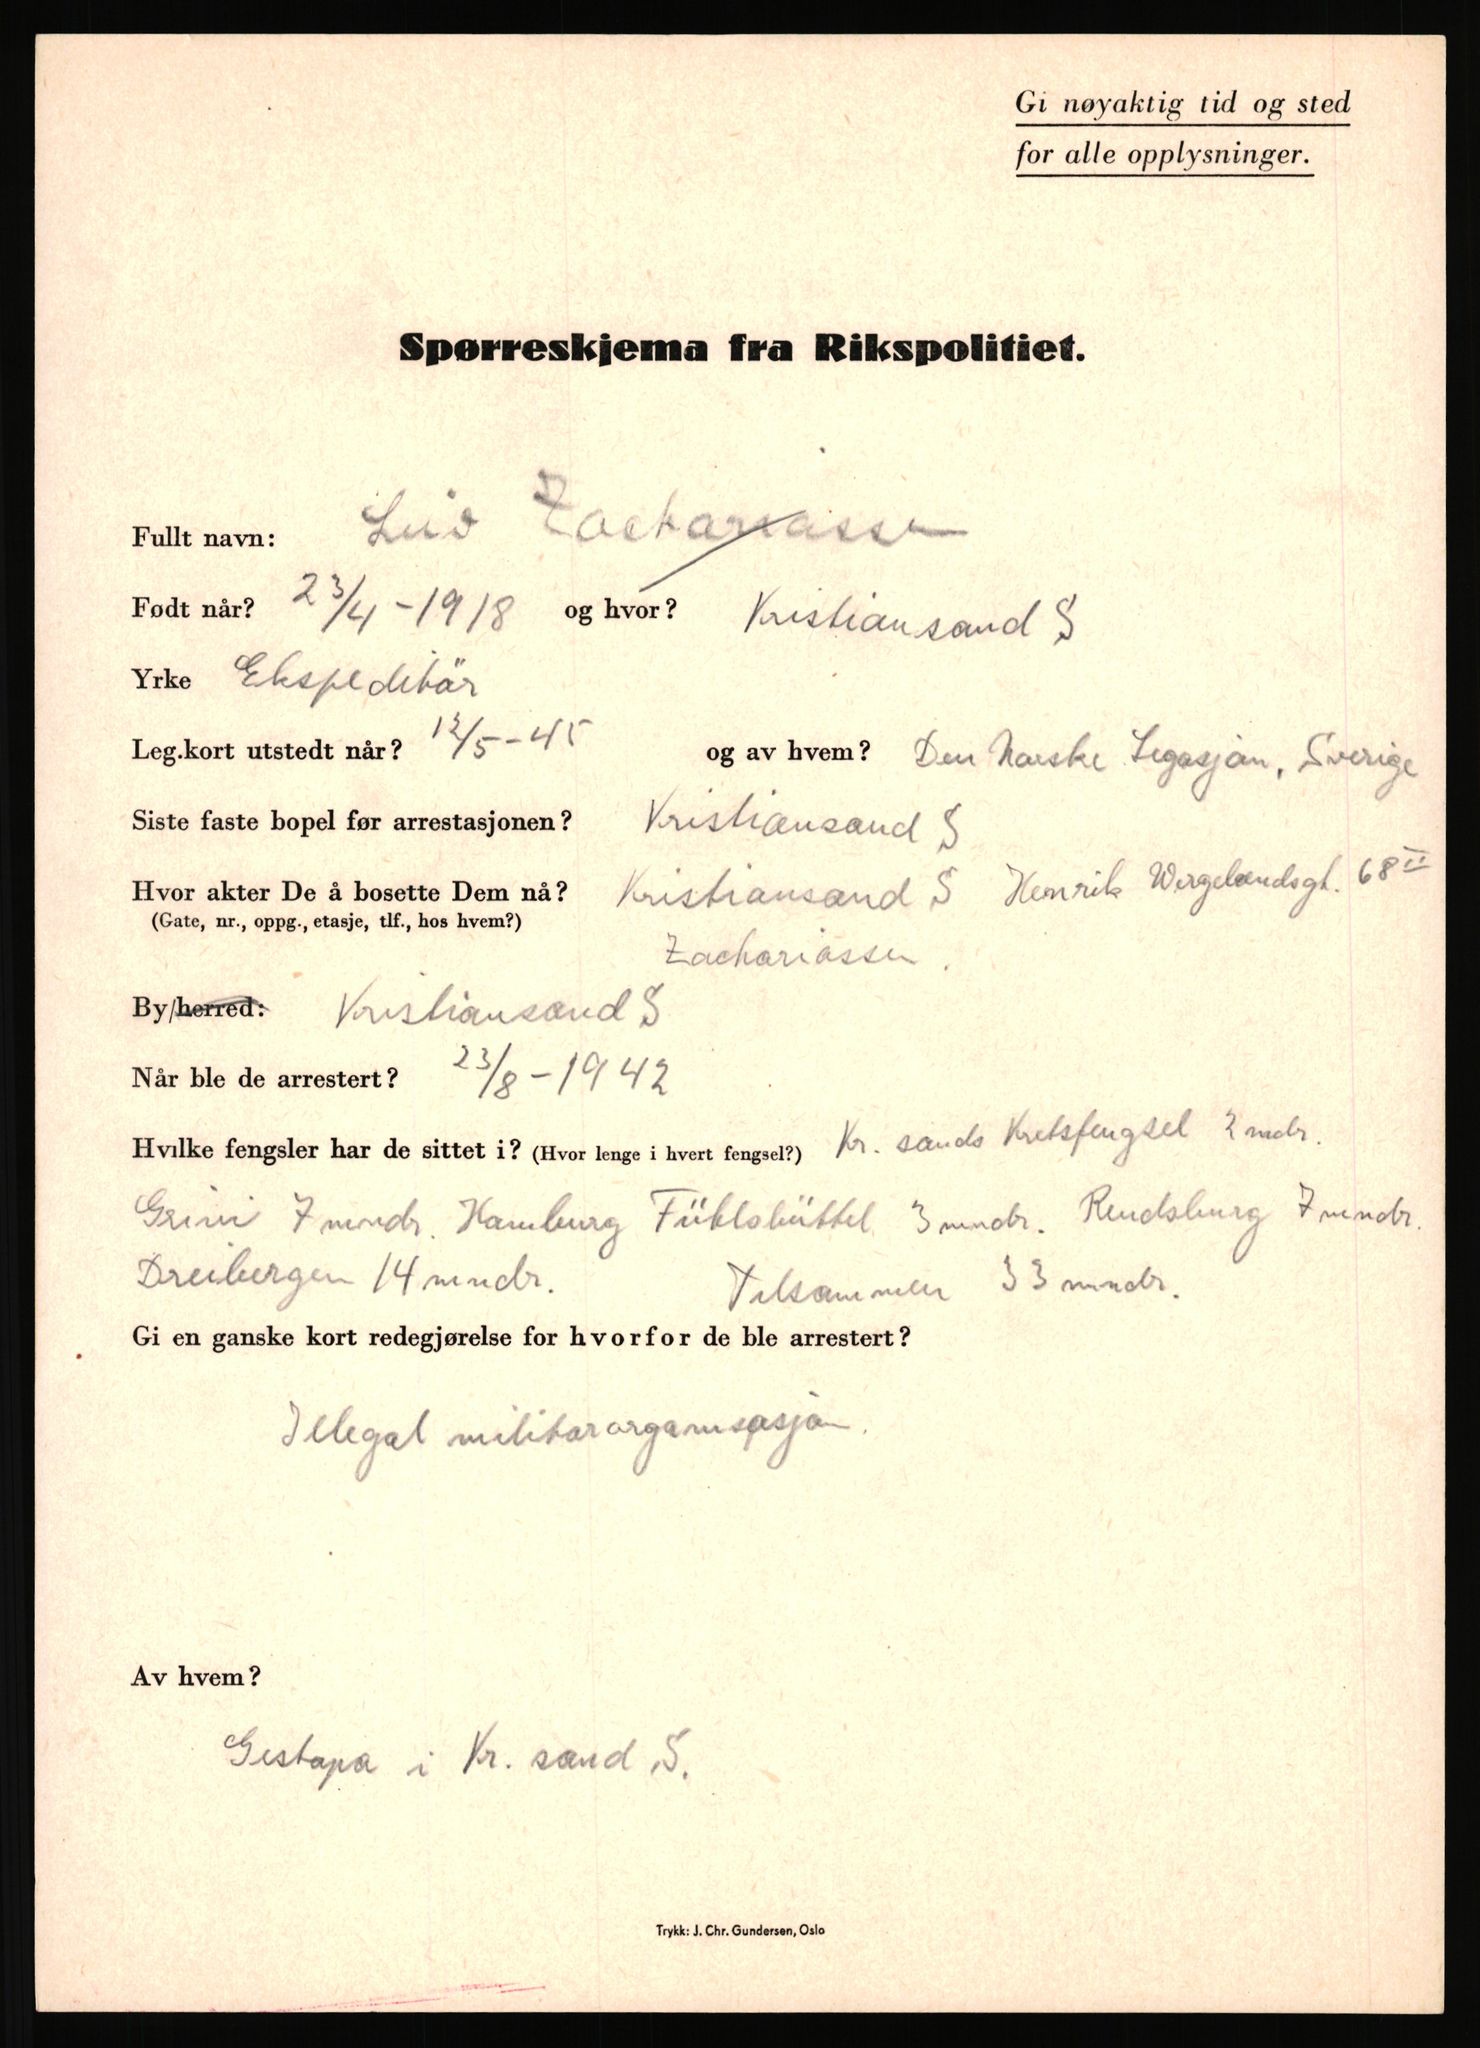 Gi nøyaktig tid og sted
for alle opplysninger.
Spørreskjema fra Rikspolitiet.
Fullt navn: Zachariassen
Født når? 23/4 - 1918 og hvor? Kristiansand S
Yrke Ekspeditär
Leg.kort utstedt når? 12/5 - 45 og av hvem? Den Norske Legasjon, Sverige
Siste faste bopel før arrestasjonen? Kristiansand S
Hvor akter De å bosette Dem nå? Kristiansand S Henrik Wergelandsgt. 68 II
(Gate, nr., oppg., etasje, tlf., hos hvem?)
Zachariassen.
By/herred: Kristiansand S
Når ble de arrestert? 23/8 - 1942
Hvilke fengsler har de sittet i? (Hvor lenge i hvert fengsel?) Kr. sands Kretsfengsel 2 mndr.
Grini 7 mndr. Hamburg Fühlsbüttel 3 mndr. Rendsburg 7 mndr.
Dreibergen 14 mndr. Tilsammen 33 mndr.
Gi en ganske kort redegjørelse for hvorfor de ble arrestert?
Illegal militærorganisasjon.
Av hvem?
Gestapo i Kr. sand S.
Trykk: J. Chr. Gundersen, Oslo